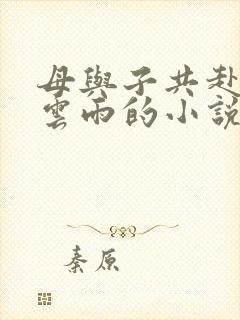 母與子共赴
雲雨的小說
秦原